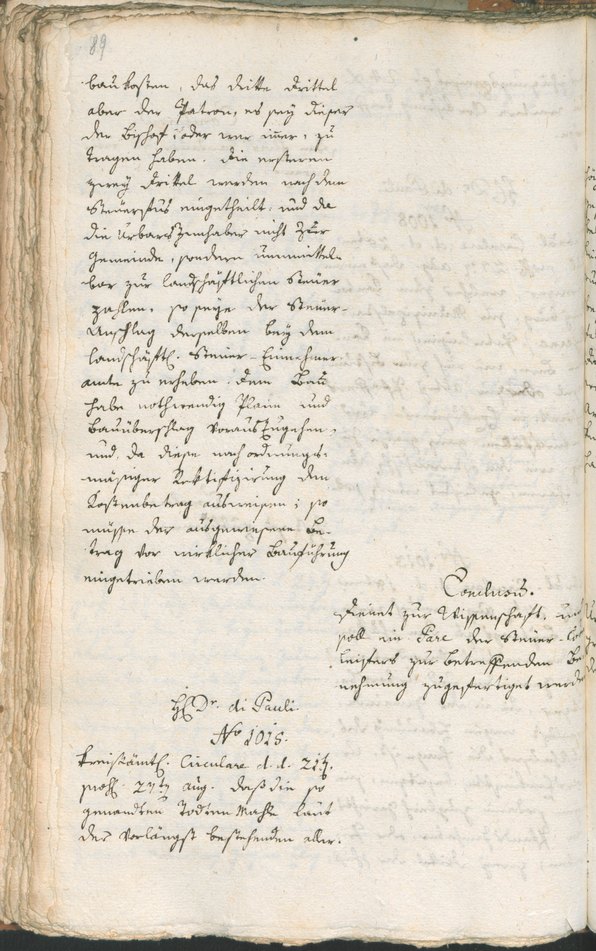 89
baukosten, das dritte Drittel
aber der Patron, es sey dieser
der Bischof oder wer immer, zu
tragen haben. Die ersteren
zwey Drittel werden nach dem
Steuerfus eingetheilt, und da
die Urbarszinnhaber nicht zur
Gemeinde, sondern unmittel-
bar zur landschäftlichen Steuer
zahlen, so seye der Steuer-
Anschlag derselben bey dem
landschäftl. Steuer-Einnehmer
amte zu erheben. Dem Bau
habe nothwendig Plann und
Bauüberschlag vorauszugehen,
und da diese nach ordnungs-
mäsiger Rektifizirung den
Kostenbetrag ausweisen; so
müsse der ausgewiesene Be-
trag vor wirklicher Bauführung
eingetrieben werden.
Conclusum.
Dienet zur Wissenschaft, und
soll ein Pare der Steuer-
leisters zur betreffenden Be
nehmung zugefertiget werden
H. Dr. di Pauli.
No 1015.
Kreisämtl. Circulare d. d. 21t.
pras. 27ten Aug. daß die so
genandten Todten Mahle laut
der vorlängst bestehenden aller-